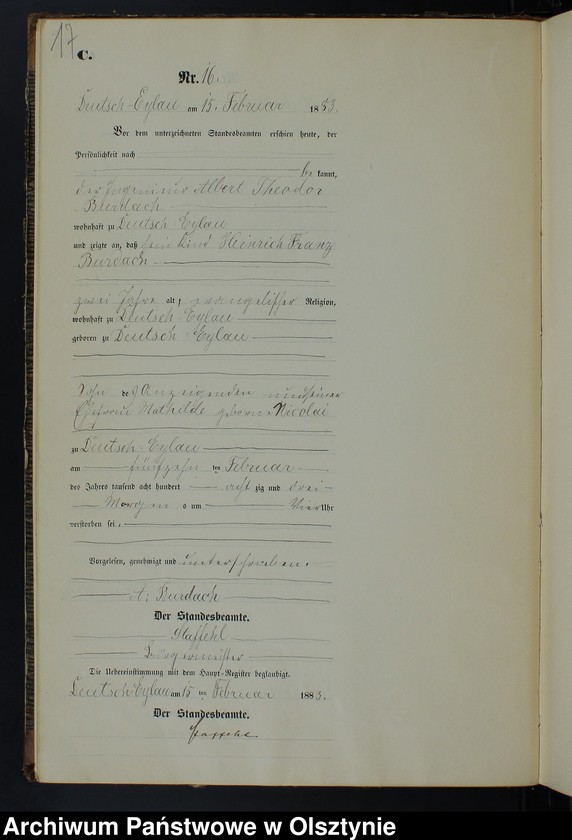 17
C.
Nr. 16.
Deutsch-Eylau am 15. Februar 1883.
Vor dem unterzeichneten Standesbeamten erschien heute, der
Persönlichkeit nach
be kannt,
der Ingenieur Albert Theodor
Burdach
wohnhaft zu Deutsch Eylau
und zeigte an, daß sein Kind Heinrich Franz
Burdach
zwei Jahre alt, evangelischer Religion,
wohnhaft zu Deutsch Eylau
geboren zu Deutsch-Eylau
Sohn des Anzeigenden und seiner
Ehefrau Mathilde geborne Nicolai
zu Deutsch-Eylau
am fünfzehn ten Februar
des Jahres tausend acht hundert acht zig und drei
Morgens um vier Uhr
verstorben sei.
Vorgelesen, genehmigt und unterschrieben.
A. Burdach
Der Standesbeamte.
Staffehl
Bürgermeister
Die Uebereinstimmung mit dem Haupt-Register beglaubigt.
Deutsch Eylau am 15 ten Februar 1883.
Der Standesbeamte.
Staffehl
Archiwum Państwowe w Olsztynie